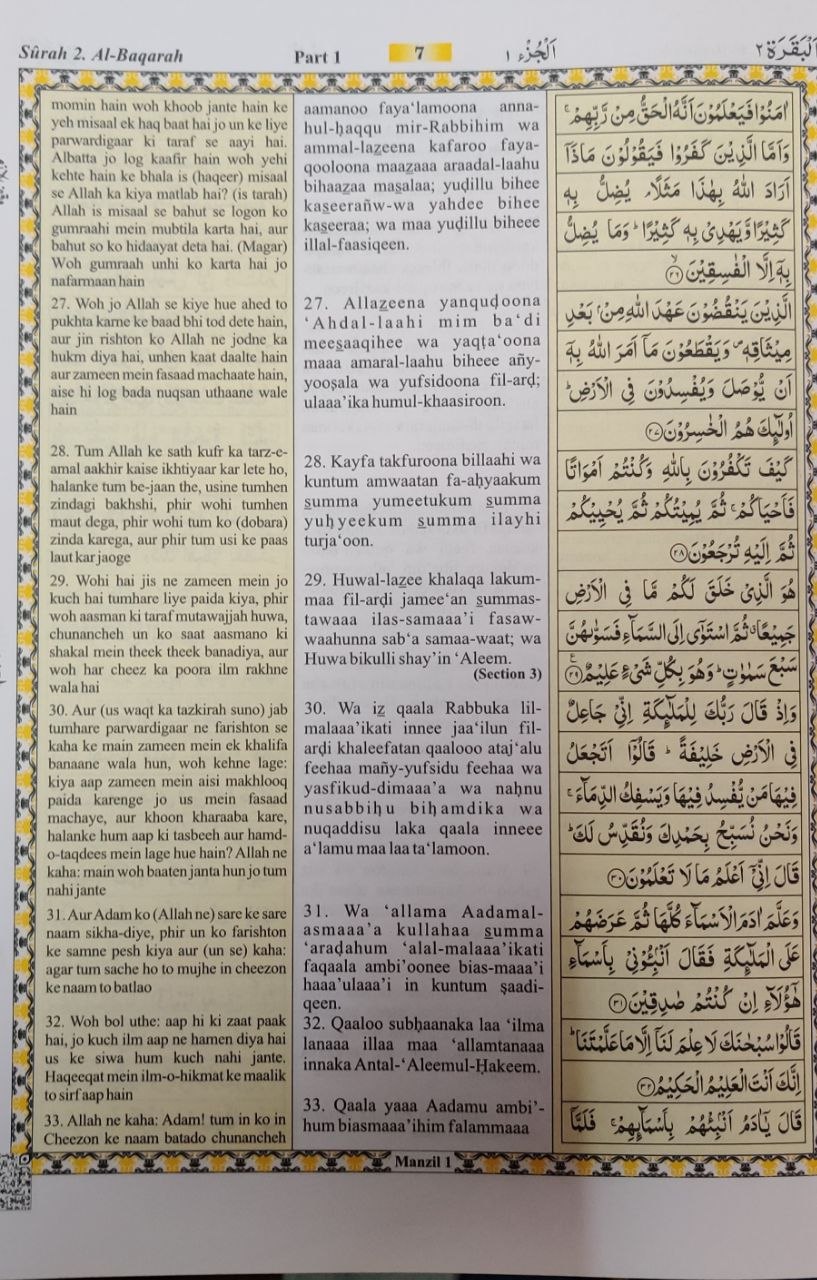 Sûrah 2. Al-Baqarah
Part 1
7
اَلْجُزْء ١
اَلْبَقَرَة ٢
momin hain woh khoob jante hain ke
yeh misaal ek haq baat hai jo un ke liye
parwardigaar ki taraf se aayi hai.
Albatta jo log kaafir hain woh yehi
kehte hain ke bhala is (haqeer) misaal
se Allah ka kiya matlab hai? (is tarah)
Allah is misaal se bahut se logon ko
gumraahi mein mubtila karta hai, aur
bahut so ko hidaayat deta hai. (Magar)
Woh gumraah unhi ko karta hai jo
nafarmaan hain
27. Woh jo Allah se kiye hue ahed to
pukhta karne ke baad bhi tod dete hain,
aur jin rishton ko Allah ne jodne ka
hukm diya hai, unhen kaat daalte hain
aur zameen mein fasaad machaate hain,
aise hi log bada nuqsan uthaane wale
hain
28. Tum Allah ke sath kufr ka tarz-e-
amal aakhir kaise ikhtiyaar kar lete ho,
halanke tum be-jaan the, usine tumhen
zindagi bakhshi, phir wohi tumhen
maut dega, phir wohi tum ko (dobara)
zinda karega, aur phir tum usi ke paas
laut kar jaoge
29. Wohi hai jis ne zameen mein jo
kuch hai tumhare liye paida kiya, phir
woh aasman ki taraf mutawajjah huwa,
chunancheh un ko saat aasmano ki
shakal mein theek theek banadiya, aur
woh har cheez ka poora ilm rakhne
wala hai
30. Aur (us waqt ka tazkirah suno) jab
tumhare parwardigaar ne farishton se
kaha ke main zameen mein ek khalifa
banaane wala hun, woh kehne lage:
kiya aap zameen mein aisi makhlooq
paida karenge jo us mein fasaad
machaye, aur khoon kharaaba kare,
halanke hum aap ki tasbeeh aur hamd-
o-taqdees mein lage hue hain? Allah ne
kaha: main woh baaten janta hun jo tum
nahi jante
31. Aur Adam ko (Allah ne) sare ke sare
naam sikha-diye, phir un ko farishton
ke samne pesh kiya aur (un se) kaha:
agar tum sache ho to mujhe in cheezon
ke naam to batlao
32. Woh bol uthe: aap hi ki zaat paak
hai, jo kuch ilm aap ne hamen diya hai
us ke siwa hum kuch nahi jante.
Haqeeqat mein ilm-o-hikmat ke maalik
to sirf aap hain
33. Allah ne kaha: Adam! tum in ko in
Cheezon ke naam batado chunancheh
aamanoo faya‘lamoona anna-
hul-ḥaqqu mir-Rabbihim wa
ammal-lazeena kafaroo faya-
qooloona maazaaa araadal-laahu
bihaaza masalaa; yuḍillu bihee
kaseerañw-wa yahdee bihee
kaseeraa; wa maa yuḍillu biheee
illal-faasiqeen.
27. Allazeena yanquḍoona
‘Ahdal-laahi mim ba‘di
meesaaqihee wa yaqta‘oona
maaa amaral-laahu biheee añy-
yooṣala wa yufsidoona fil-arḍ;
ulaaa’ika humul-khaasiroon.
28. Kayfa takfuroona billaahi wa
kuntum amwaatan fa-aḥyaakum
summa yumeetukum summa
yuḥyeekum summa ilayhi
turja‘oon.
29. Huwal-lazee khalaqa lakum-
maa fil-arḍi jamee‘an summas-
tawaaa ilas-samaaa’i fasaw-
waahunna sab‘a samaa-waat; wa
Huwa bikulli shay’in ‘Aleem.
(Section 3)
30. Wa iz qaala Rabbuka lil-
malaaa’ikati innee jaa‘ilun fil-
arḍi khaleefatan qaalooo ataj‘alu
feehaa mañy-yufsidu feehaa wa
yasfikud-dimaaa’a wa naḥnu
nusabbiḥu biḥamdika wa
nuqaddisu laka qaala inneee
a‘lamu maa laa ta‘lamoon.
31. Wa ‘allama Aadamal-
asmaaa’a kullahaa summa
‘araḍahum ‘alal-malaaa’ikati
faqaala ambi’oonee bias-maaa’i
haaa’ulaaa’i in kuntum ṣaadi-
qeen.
32. Qaaloo subḥaanaka laa ‘ilma
lanaaa illaa maa ‘allamtanaaa
innaka Antal-‘Aleemul-Ḥakeem.
33. Qaala yaaa Aadamu ambi’-
hum biasmaaa’ihim falammaaa
اٰمَنُوْا فَيَعْلَمُوْنَ اَنَّهُ الْحَقُّ مِنْ رَّبِّهِمْ ۚ
وَاَمَّا الَّذِيْنَ كَفَرُوْا فَيَقُوْلُوْنَ مَاذَاۤ
اَرَادَ اللّٰهُ بِهٰذَا مَثَلًا ۘ يُضِلُّ بِهٖ
كَثِيْرًا وَّيَهْدِيْ بِهٖ كَثِيْرًا ؕ وَمَا يُضِلُّ
بِهٖۤ اِلَّا الْفٰسِقِيْنَ ۙ‏﴿۲۶﴾
الَّذِيْنَ يَنْقُضُوْنَ عَهْدَ اللّٰهِ مِنْۢ بَعْدِ
مِيْثَاقِهٖ ۪ وَيَقْطَعُوْنَ مَاۤ اَمَرَ اللّٰهُ بِهٖۤ
اَنْ يُّوْصَلَ وَيُفْسِدُوْنَ فِى الْاَرْضِ ؕ
اُولٰٓئِكَ هُمُ الْخٰسِرُوْنَ ﴿۲۷﴾
كَيْفَ تَكْفُرُوْنَ بِاللّٰهِ وَكُنْتُمْ اَمْوَاتًا
فَاَحْيَاكُمْ ۚ ثُمَّ يُمِيْتُكُمْ ثُمَّ يُحْيِيْكُمْ
ثُمَّ اِلَيْهِ تُرْجَعُوْنَ ﴿۲۸﴾
هُوَ الَّذِيْ خَلَقَ لَكُمْ مَّا فِى الْاَرْضِ
جَمِيْعًا ۗ ثُمَّ اسْتَوٰۤى اِلَى السَّمَآءِ فَسَوّٰىهُنَّ
سَبْعَ سَمٰوٰتٍ ؕ وَهُوَ بِكُلِّ شَيْءٍ عَلِيْمٌ ﴿۲۹﴾ ع
وَاِذْ قَالَ رَبُّكَ لِلْمَلٰٓئِكَةِ اِنِّيْ جَاعِلٌ
فِى الْاَرْضِ خَلِيْفَةً ؕ قَالُوْۤا اَتَجْعَلُ
فِيْهَا مَنْ يُّفْسِدُ فِيْهَا وَيَسْفِكُ الدِّمَآءَ ۚ
وَنَحْنُ نُسَبِّحُ بِحَمْدِكَ وَنُقَدِّسُ لَكَ ؕ
قَالَ اِنِّيْۤ اَعْلَمُ مَا لَا تَعْلَمُوْنَ ﴿۳۰﴾
وَعَلَّمَ اٰدَمَ الْاَسْمَآءَ كُلَّهَا ثُمَّ عَرَضَهُمْ
عَلَى الْمَلٰٓئِكَةِ فَقَالَ اَنْۢبِـُٔوْنِيْ بِاَسْمَآءِ
هٰۤؤُلَآءِ اِنْ كُنْتُمْ صٰدِقِيْنَ ﴿۳۱﴾
قَالُوْا سُبْحٰنَكَ لَا عِلْمَ لَنَاۤ اِلَّا مَا عَلَّمْتَنَا ؕ
اِنَّكَ اَنْتَ الْعَلِيْمُ الْحَكِيْمُ ﴿۳۲﴾
قَالَ يٰۤاٰدَمُ اَنْۢبِئْهُمْ بِاَسْمَآئِهِمْ ۚ فَلَمَّاۤ
Manzil 1